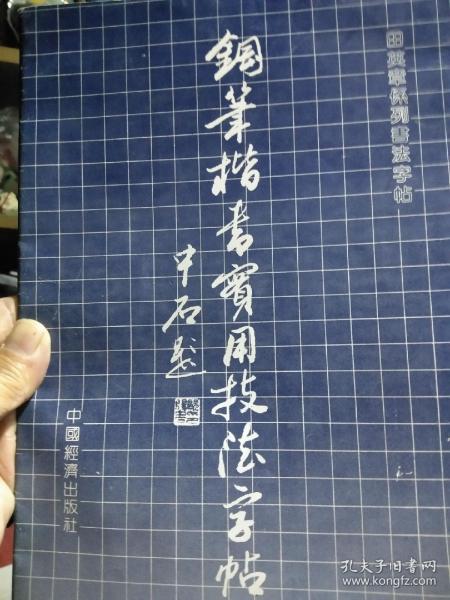 田英章係列書法字帖
鋼筆楷书實用技法字帖
中石题
中國經濟出版社
孔夫子旧书网
www.kongfz.com